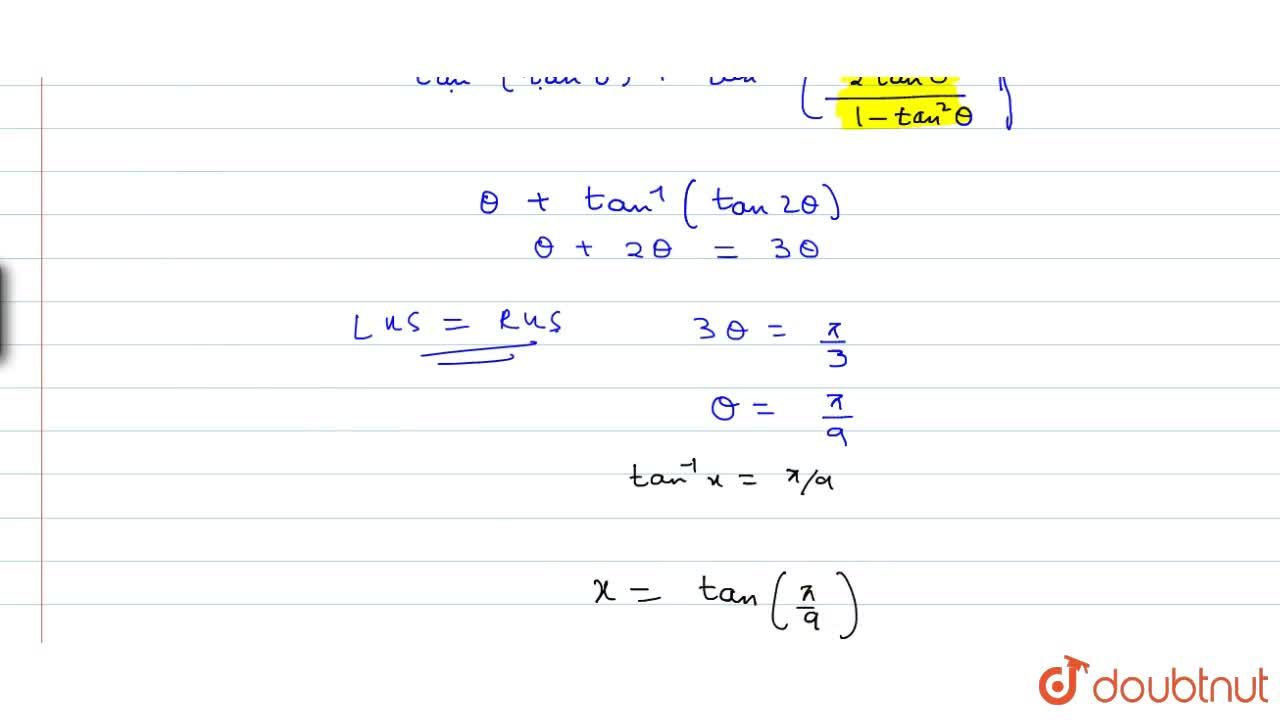 2 tan θ
1 - tan² θ
θ + tan⁻¹ ( tan 2θ )
θ + 2θ = 3θ
LHS = RHS 3θ = π/3
θ = π/9
tan⁻¹ x = π/9
x = tan ( π/9 )
doubtnut